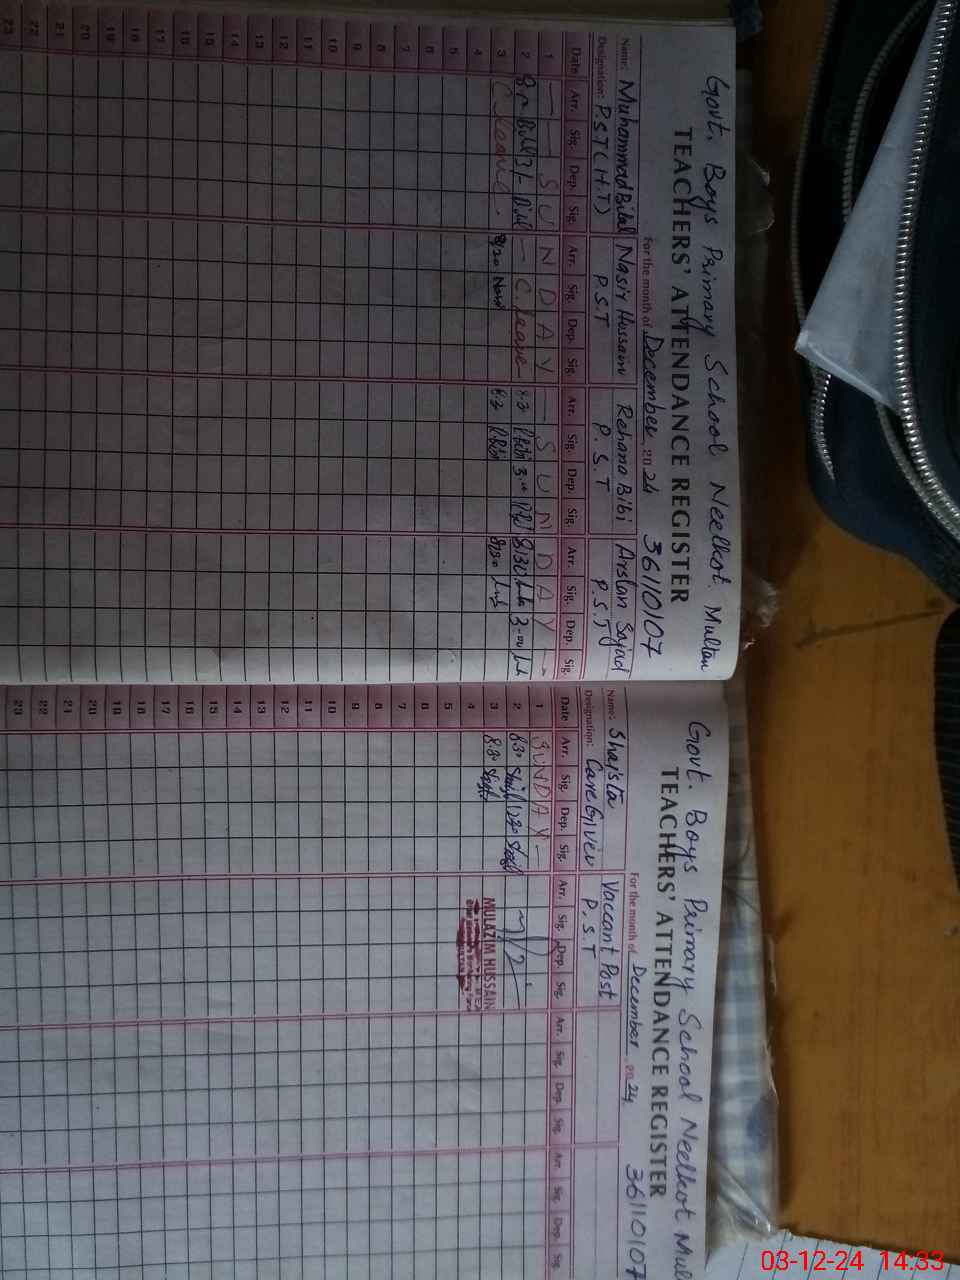 Govt. Boys Primary School Neelkot Multan
TEACHERS' ATTENDANCE REGISTER
For the month of December 2024 36110107
Name: Muhammad Bilal Nasir Hussain Rehana Bibi Arslan Sajad
Designation: P.S.T (H.T) P.S.T P.S.T P.S.T
Date Arr. Sig. Dep. Sig. Arr. Sig. Dep. Sig. Arr. Sig. Dep. Sig. Arr. Sig. Dep. Sig.
1 — — S U N D A Y — S U N D A Y —
2 — C. leave 8:30
3 C. leave. 8/30
4
5
6
7
8
9
10
11
12
13
14
15
16
17
18
19
20
21
22
23
Govt. Boys Primary School Neelkot Mul
TEACHERS' ATTENDANCE REGISTER
For the month of December 2024 36110107
Name: Shaista Vaccant Post
Designation: Care Giver P.S.T
Date Arr. Sig. Dep. Sig. Arr. Sig. Dep. Sig. Arr. Sig. Dep. Sig. Arr. Sig. Dep. Sig.
1 SUNDAY —
2 8.30
3 8.30 MULAZIM HUSSAIN
4
5
6
7
8
9
10
11
12
13
14
15
16
17
18
19
20
21
22
23
03-12-24 14:33